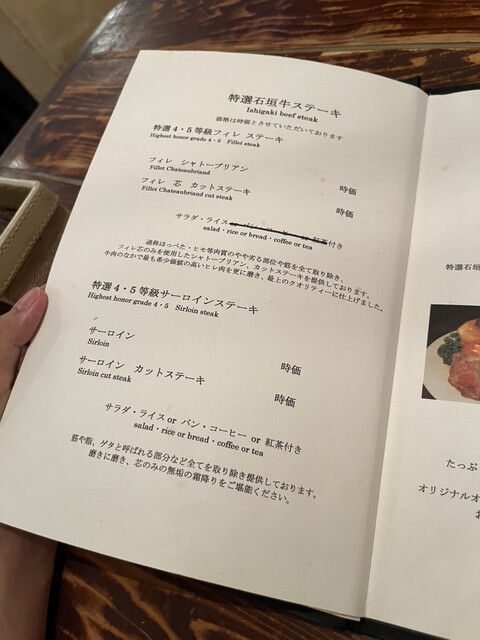 特選石垣牛ステーキ
Ishigaki beef steak
価格は時価とさせていただいております
特選4・5等級フィレ ステーキ
Highest honor grade 4・5 Fillet steak
フィレ シャトーブリアン 時価
Fillet Chateaubriand
フィレ 芯 カットステーキ 時価
Fillet Chateaubriand cut steak
サラダ・ライス
付き
salad・rice or bread・coffee or tea
通称ほっぺた・ヒモ等肉質のやや劣る部位や筋を全て取り除き、
フィレ芯のみを使用したシャトーブリアン、カットステーキを提供しております。
牛肉のなかで最も希少価値の高いヒレ肉を更に磨き、最上のクオリティーに仕上げました。
特選4・5等級サーロインステーキ
Highest honor grade 4・5 Sirloin steak
サーロイン 時価
Sirloin
サーロイン カットステーキ 時価
Sirloin cut steak
サラダ・ライス or パン・コーヒー or 紅茶付き
salad・rice or bread・coffee or tea
筋や脂、ゲタと呼ばれる部分など全てを取り除き提供しております。
磨きに磨き、芯のみの無垢の霜降りをご堪能ください。
特選石垣
たっぷ
オリジナルオ